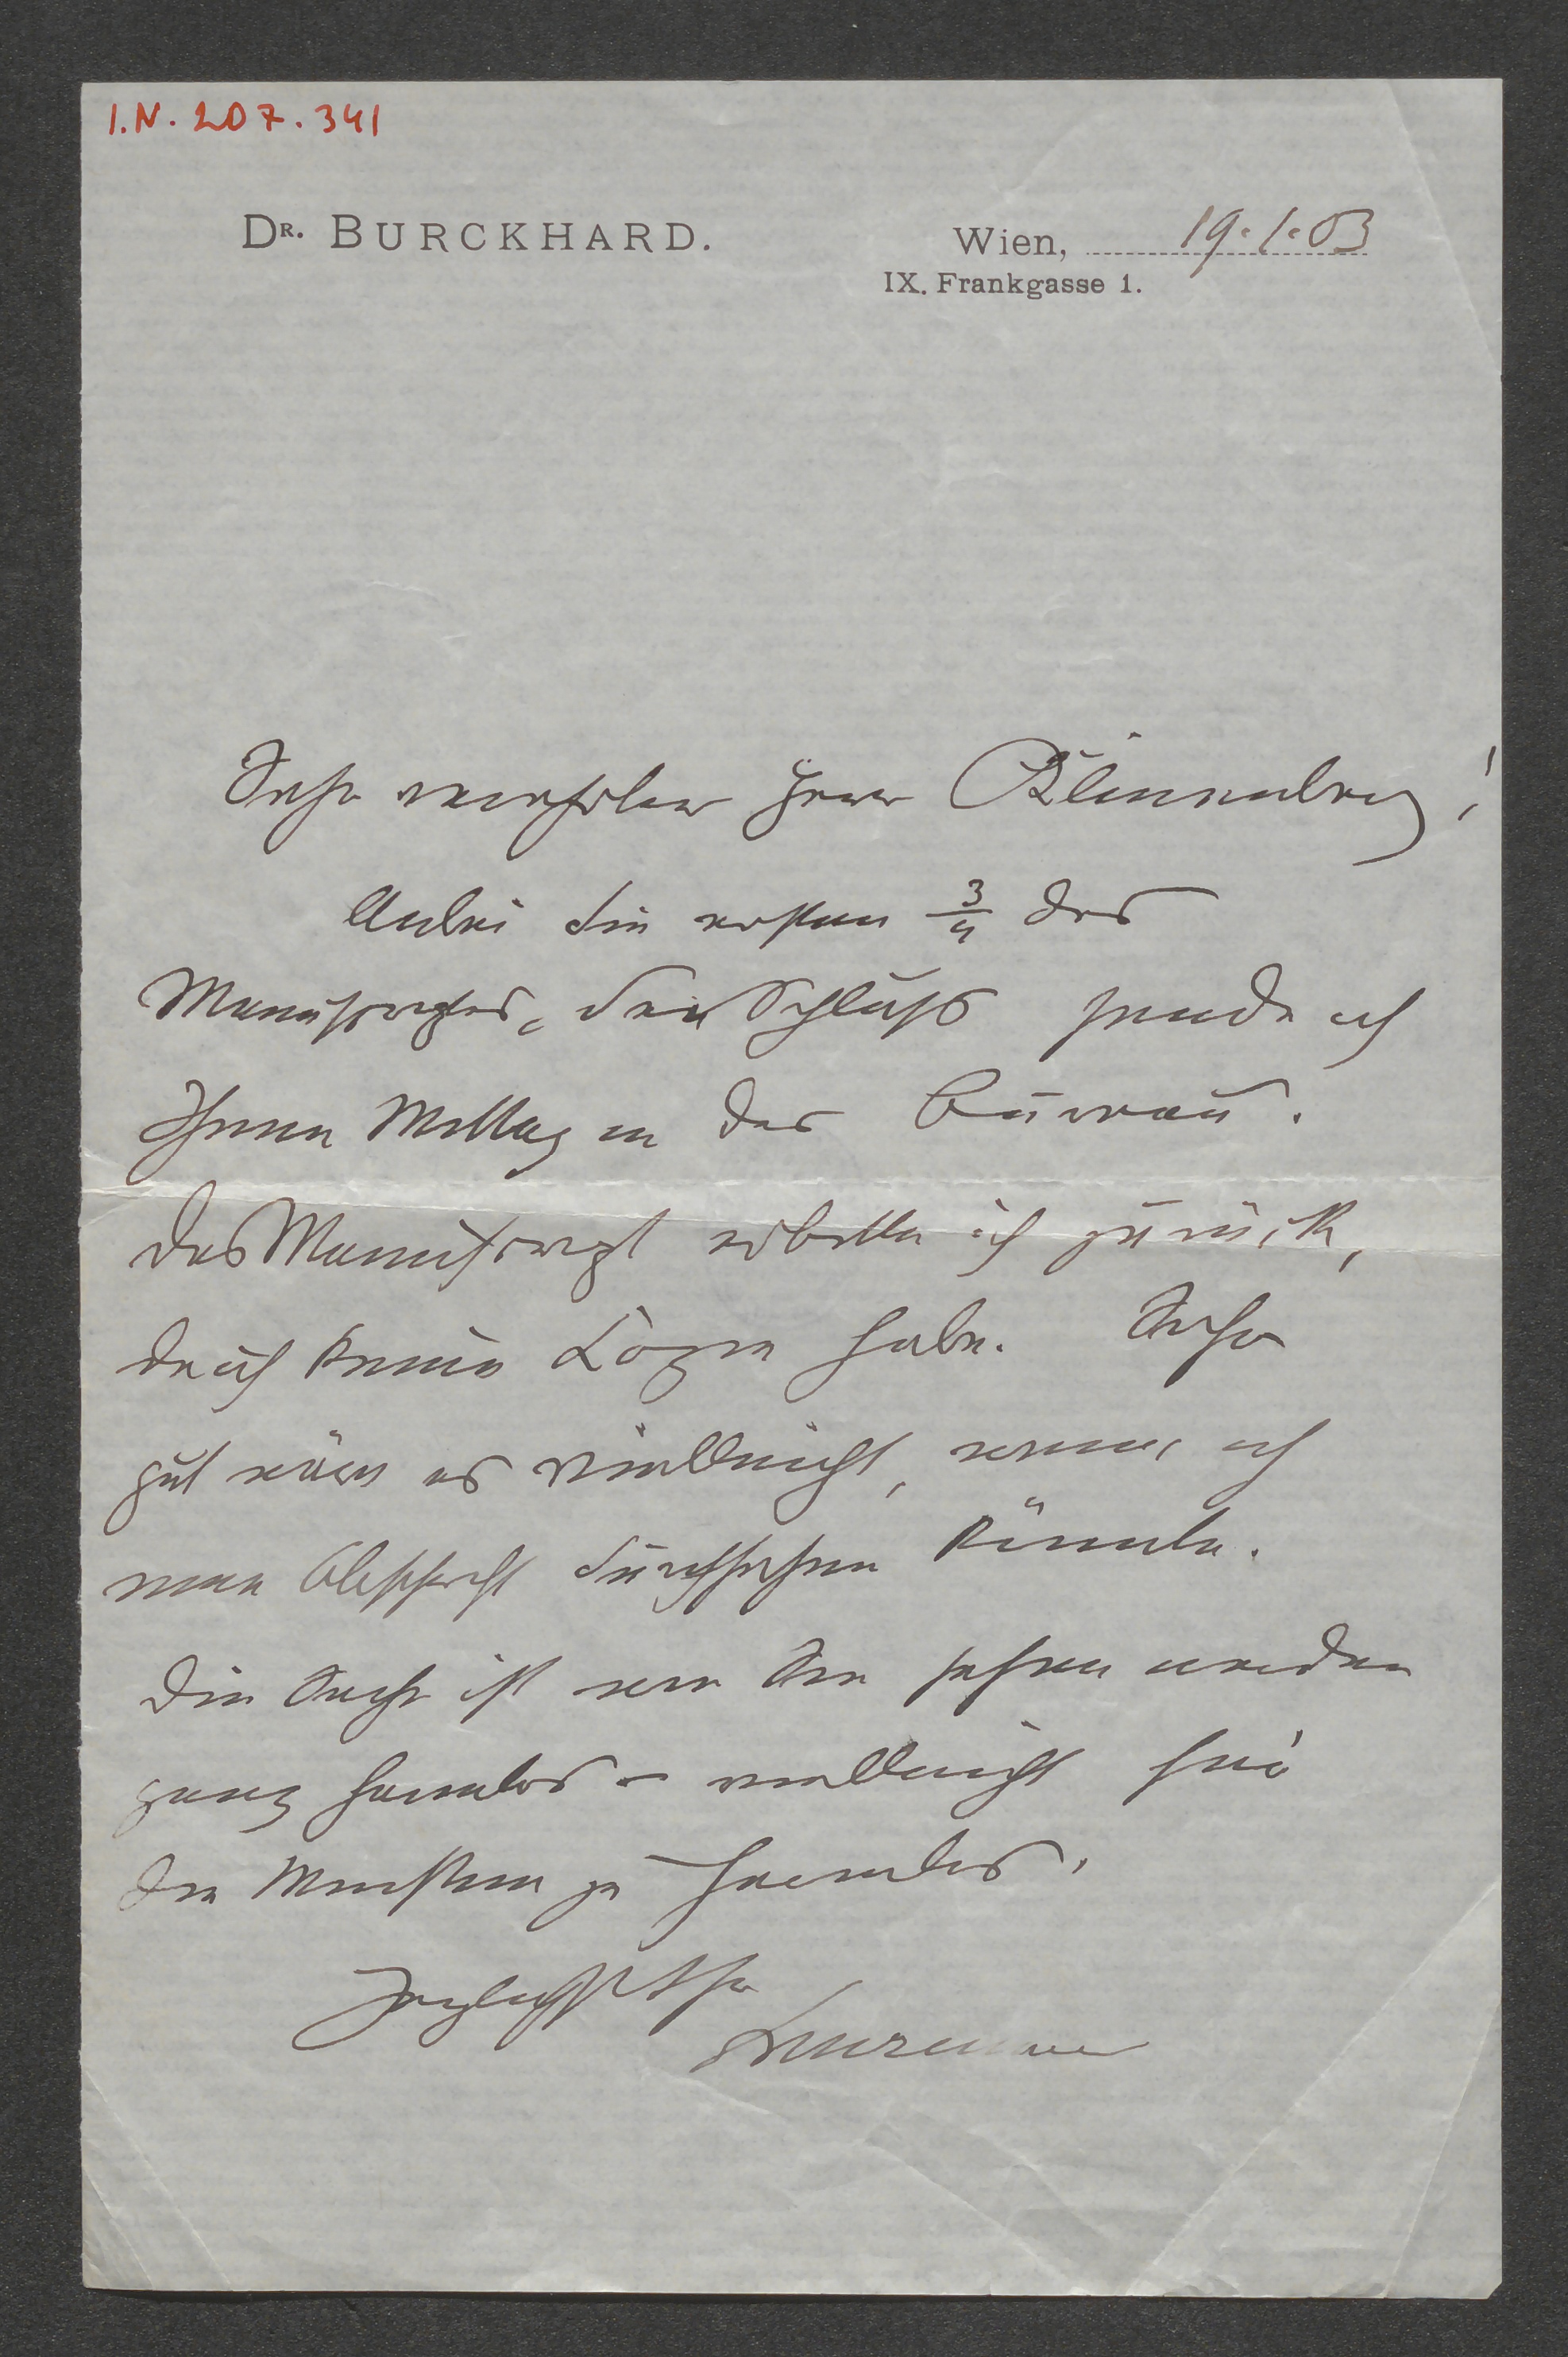 I.N. 207.341
DR. BURCKHARD.
Wien, 19.1.03
IX. Frankgasse 1.
Sehr verehrter Herr Klinenberg!
Anbei die ersten 3/4 des
Manuscriptes, den Schluß sende ich
Ihnen Mittag in das Bureau.
Das Manuscript erbitte ich zurück,
da ich keine Copie habe. Sehr
gut wäre es vielleicht, wenn ich
eine Abschrift durchsehen könnte.
Die Sache ist wie Sie sehen werden
ganz harmlos – vielleicht für
die Meisten zu harmlos.
Herzlichst Ihr